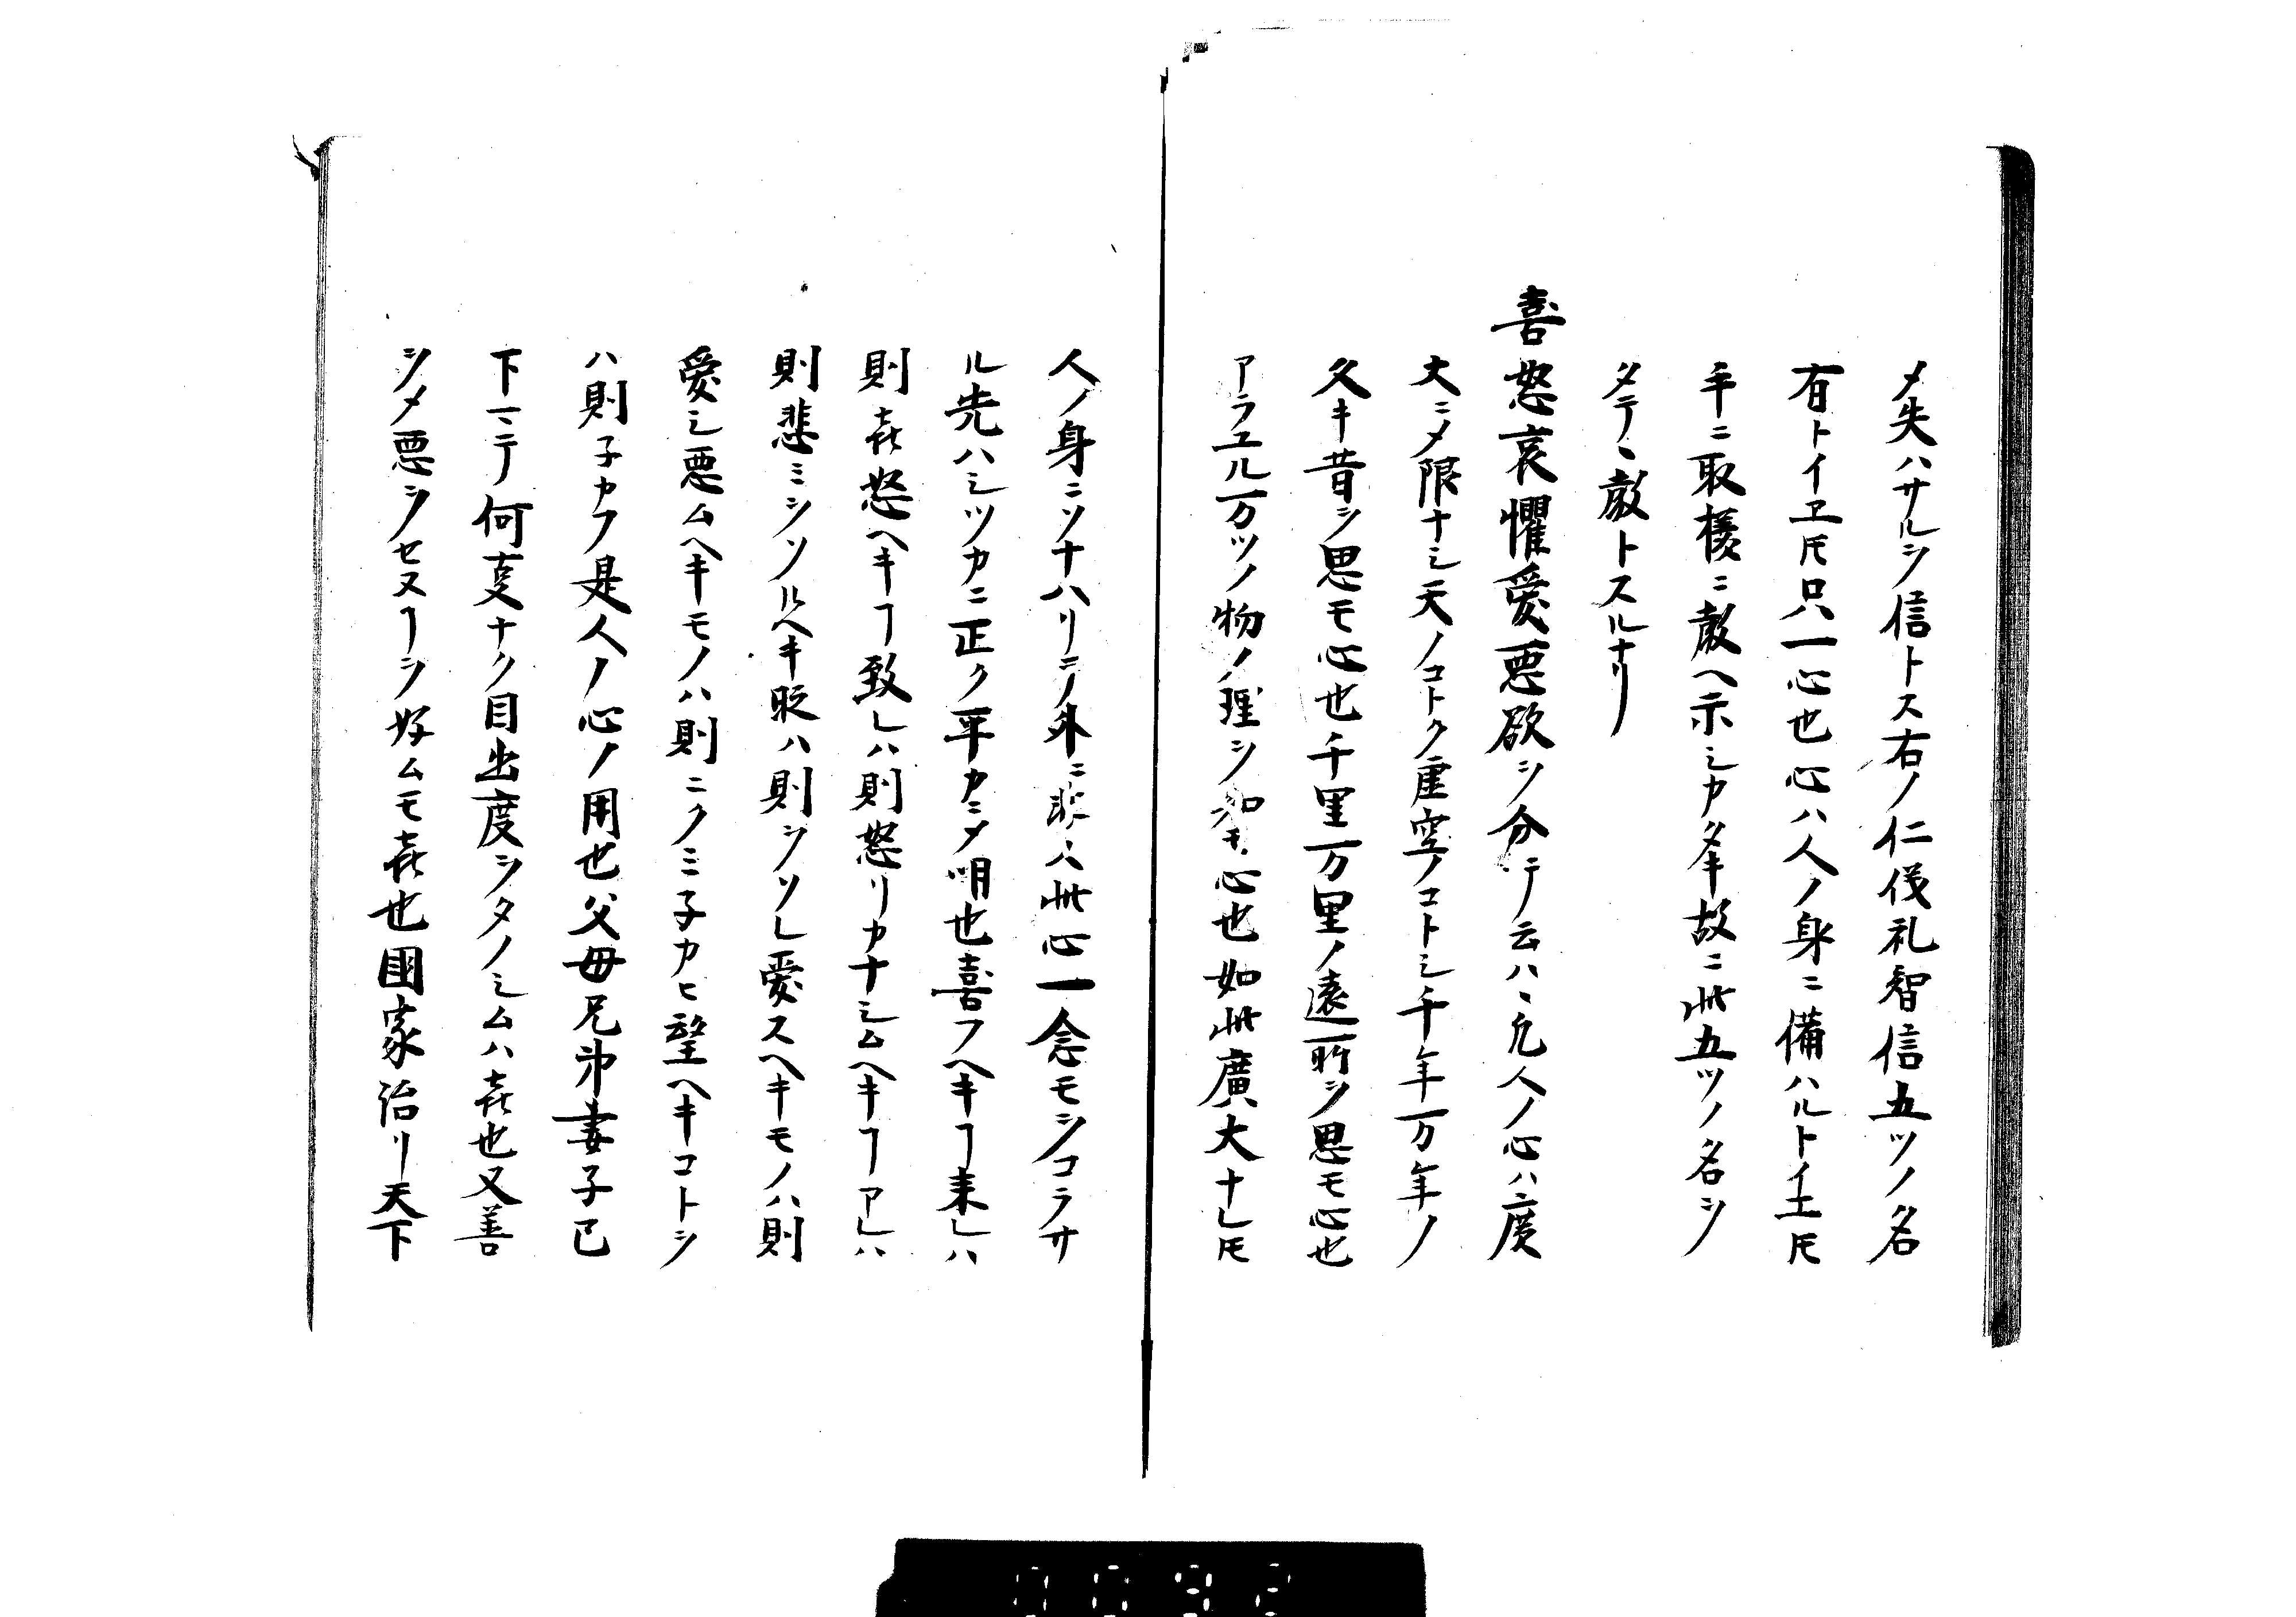 メ失ハサルヲ信トス右ノ仁義礼智信五ツノ名
有トイヱ𪜈只一心也心ハ人ノ身ニ備ハルトイヱ𪜈
手ニ取様ニ教ヘ示シカタキ故ニ此五ツノ名ヲ
タテヽ教トスルナリ
喜怒哀懼愛悪欲ヲ分テ云ハヽ凡人ノ心ハ広
大ニメ限ナシ天ノコトク虚空ノコトシ千年万年ノ
久キ昔ヲ思モ心也千里万里ノ遠所ヲ思モ心也
アラユル万ツノ物ノ理ヲ知モ心也如此廣大ナレ𪜈
人ノ身ニソナハリテ外ニ非ス此心一念モヲコラサ
ル先ハシツカニ正ク平カニメ明也喜フヘキヿ来レハ
則㐂怒ヘキヿ致レハ則怒リカナシムヘキヿアレハ
則悲ミヲソルヘキ時ハ則ヲソレ愛スヘキモノハ則
愛シ悪ムヘキモノハ則ニクミ子カヒ望ヘキコトヲ
ハ則子カフ是人ノ心ノ用也父母兄弟妻子已
下マテ何事ナク目出度ヲタノシムハ㐂也又善
ヲメ悪ヲセヌヿヲ好ムモ㐂也國家治リ天下